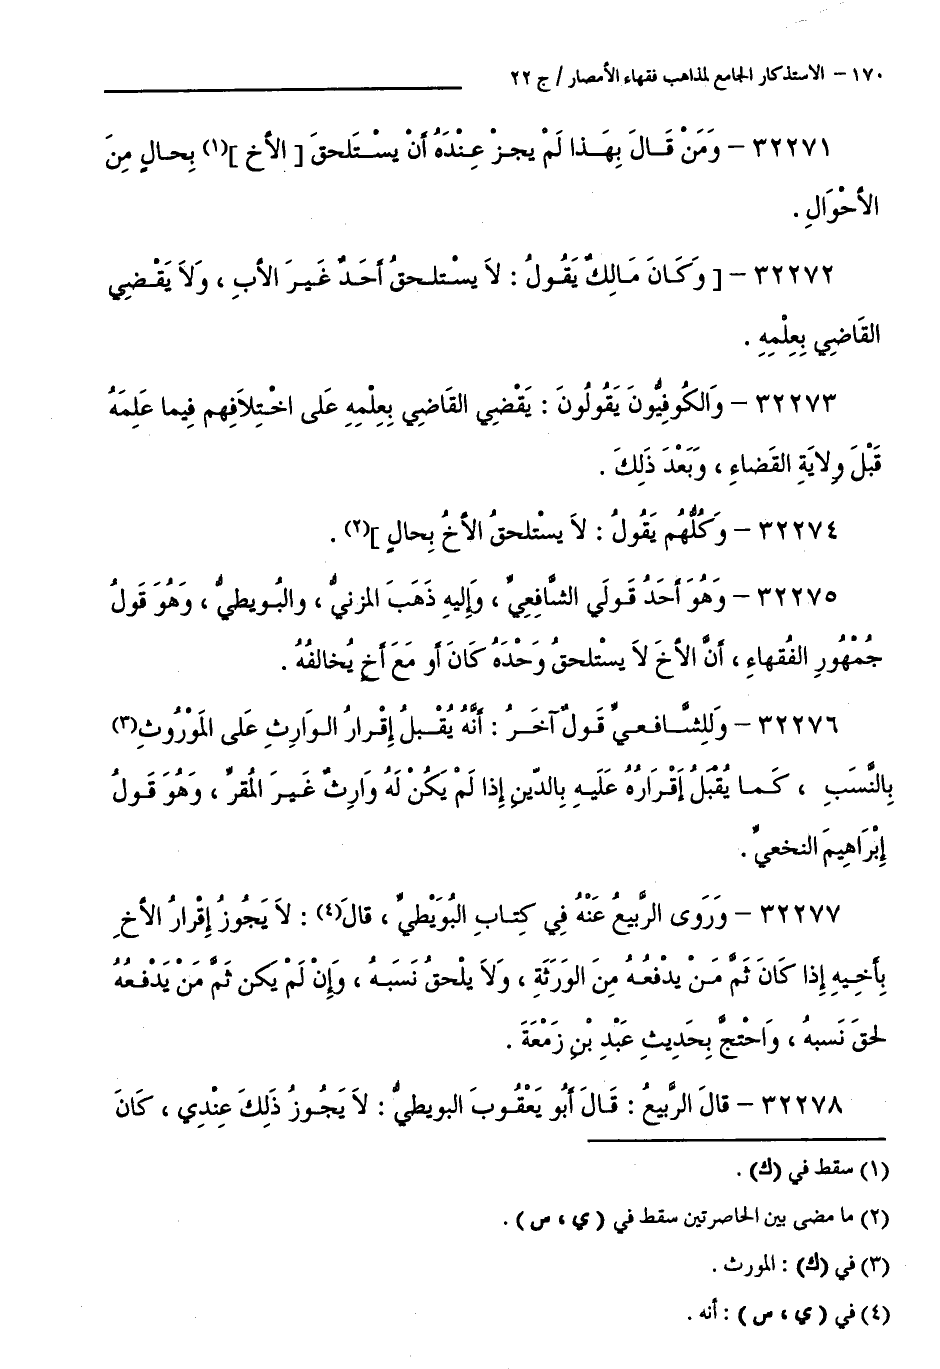 ١٧٠ – الاستذكار الجامع لمذاهب فقهاء الأمصار / ج ٢٢
٣٢٢٧١ – وَمَنْ قَالَ بِهَذا لَمْ يجزْ عِنْدَهُ أَنْ يسْتَلحقَ [ الأخ ](١) بِحالٍ مِنَ
الأحْوَالِ .
٣٢٢٧٢ – [ وَكَانَ مَالِكٌ يَقُولُ : لاَ يسْتلحقُ أَحَدٌ غَيرَ الأبِ ، وَلاَ يَقْضِي
القَاضِي بِعِلْمِهِ .
٣٢٢٧٣ – وَالكُوفِيُّونَ يَقُولُونَ : يَقْضِي القَاضِي بِعِلْمِهِ عَلى اخْتِلاَفِهم فِيما عَلِمَهُ
قَبْلَ وِلايَةِ القَضاءِ ، وَبَعْدَ ذَلِكَ .
٣٢٢٧٤ – وَكُلُّهُم يَقُولُ : لاَ يسْتلحقُ الأخُ بِحالٍ ](٢) .
٣٢٢٧٥ – وَهُوَ أَحَدُ قَولَي الشَّافِعِيِّ ، وَإِليهِ ذَهَبَ المزنيُّ ، والبُويطيُّ ، وَهُوَ قَولُ
جُمْهُورِ الفُقهاءِ ، أَنَّ الأخَ لاَ يستلحقُ وَحْدَهُ كَانَ أو مَعَ أخٍ يُخالفُهُ .
٣٢٢٧٦ – وَللِشَّافعيِّ قَولٌ آخَرُ : أَنَّهُ يُقْبلُ إِقْرارُ الوَارِثِ عَلى المَوْرُوثِ(٣)
بِالنَّسَبِ ، كَما يُقْبَلُ إِقْرَارُهُ عَلَيهِ بِالدّينِ إِذا لَمْ يَكُنْ لَهُ وَارِثٌ غَيرَ المُقرِّ ، وَهُوَ قَولُ
إِبْرَاهِيمَ النخعيِّ .
٣٢٢٧٧ – وَرَوى الرَّبيعُ عَنْهُ فِي كِتابِ البُوَيْطِيِّ ، قالَ(٤) : لاَ يَجُوزُ إِقْرارُ الأخِ
بِأَخِيهِ إِذا كَانَ ثَمَّ مَنْ يدْفعُهُ مِنَ الوَرَثَةِ ، وَلاَ يلْحقُ نَسَبَهُ ، وَإِنْ لَمْ يكن ثَمَّ مَنْ يَدْفعُهُ
لحقَ نَسبهُ ، وَاحْتجَّ بِحَديثِ عَبْدِ بْنِ زَمْعَةَ .
٣٢٢٧٨ – قالَ الرَّبيعُ : قَالَ أَبُو يَعْقُوبَ البويطيُّ : لاَ يَجُوزُ ذَلِكَ عِنْدِي ، كَانَ
(١) سقط في (ك) .
(٢) ما مضى بين الحاصرتين سقط في ( ي ، س ) .
(٣) في (ك) : المورث .
(٤) في ( ي ، س ) : أنه .